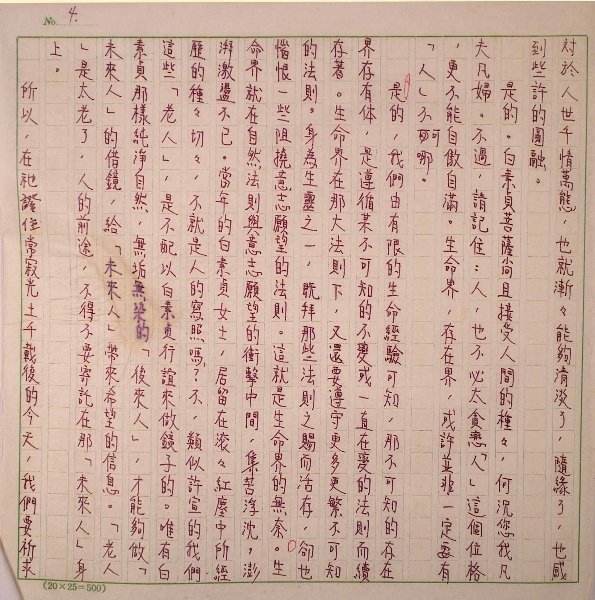 No. 4.
對於人世千情萬態,也就漸々能夠清淡了,隨緣了,也感
到些許的圓融。
是的。白素貞菩薩尚且接受人間的種々,何況您我凡
夫凡婦。不過,請記住:人,也不必太貪戀「人」這個位格
,更不能自傲自滿。生命界,存在界,或許並非一定要有
「人」不可哪。
是的,我們由有限的生命經驗可知,那不可知的存在
界存有体,是遵循某不可知的不變或一直在變的法則而續
存著。生命界在那大法則下,又還要遵守更多更繁不可知
的法則。身為生靈之一,既拜那些法則之賜而活存,卻也
惱恨一些阻撓意志願望的法則。這就是生命界的無奈。生
命界就在自然法則與意志願望的衝擊中間,集苦浮沈,澎
湃激盪不已。當年的白素貞女士,居留在滾々紅塵中所經
歷的種々切々,不就是人的寫照嗎?不,類似許宣的我們
這些「老人」,是不配以白素貞行誼來做鏡子的。唯有白
素貞那樣純淨自然,無垢無染的「後來人」,才能夠做「
未來人」的借鏡,給「未來人」帶來希望的信息。「老人
」是太老了,人的前途,不得不要寄託在那「未來人」身
上。
所以,在祂證住常寂光土千載後的今天,我們要祈求
(20×25=500)